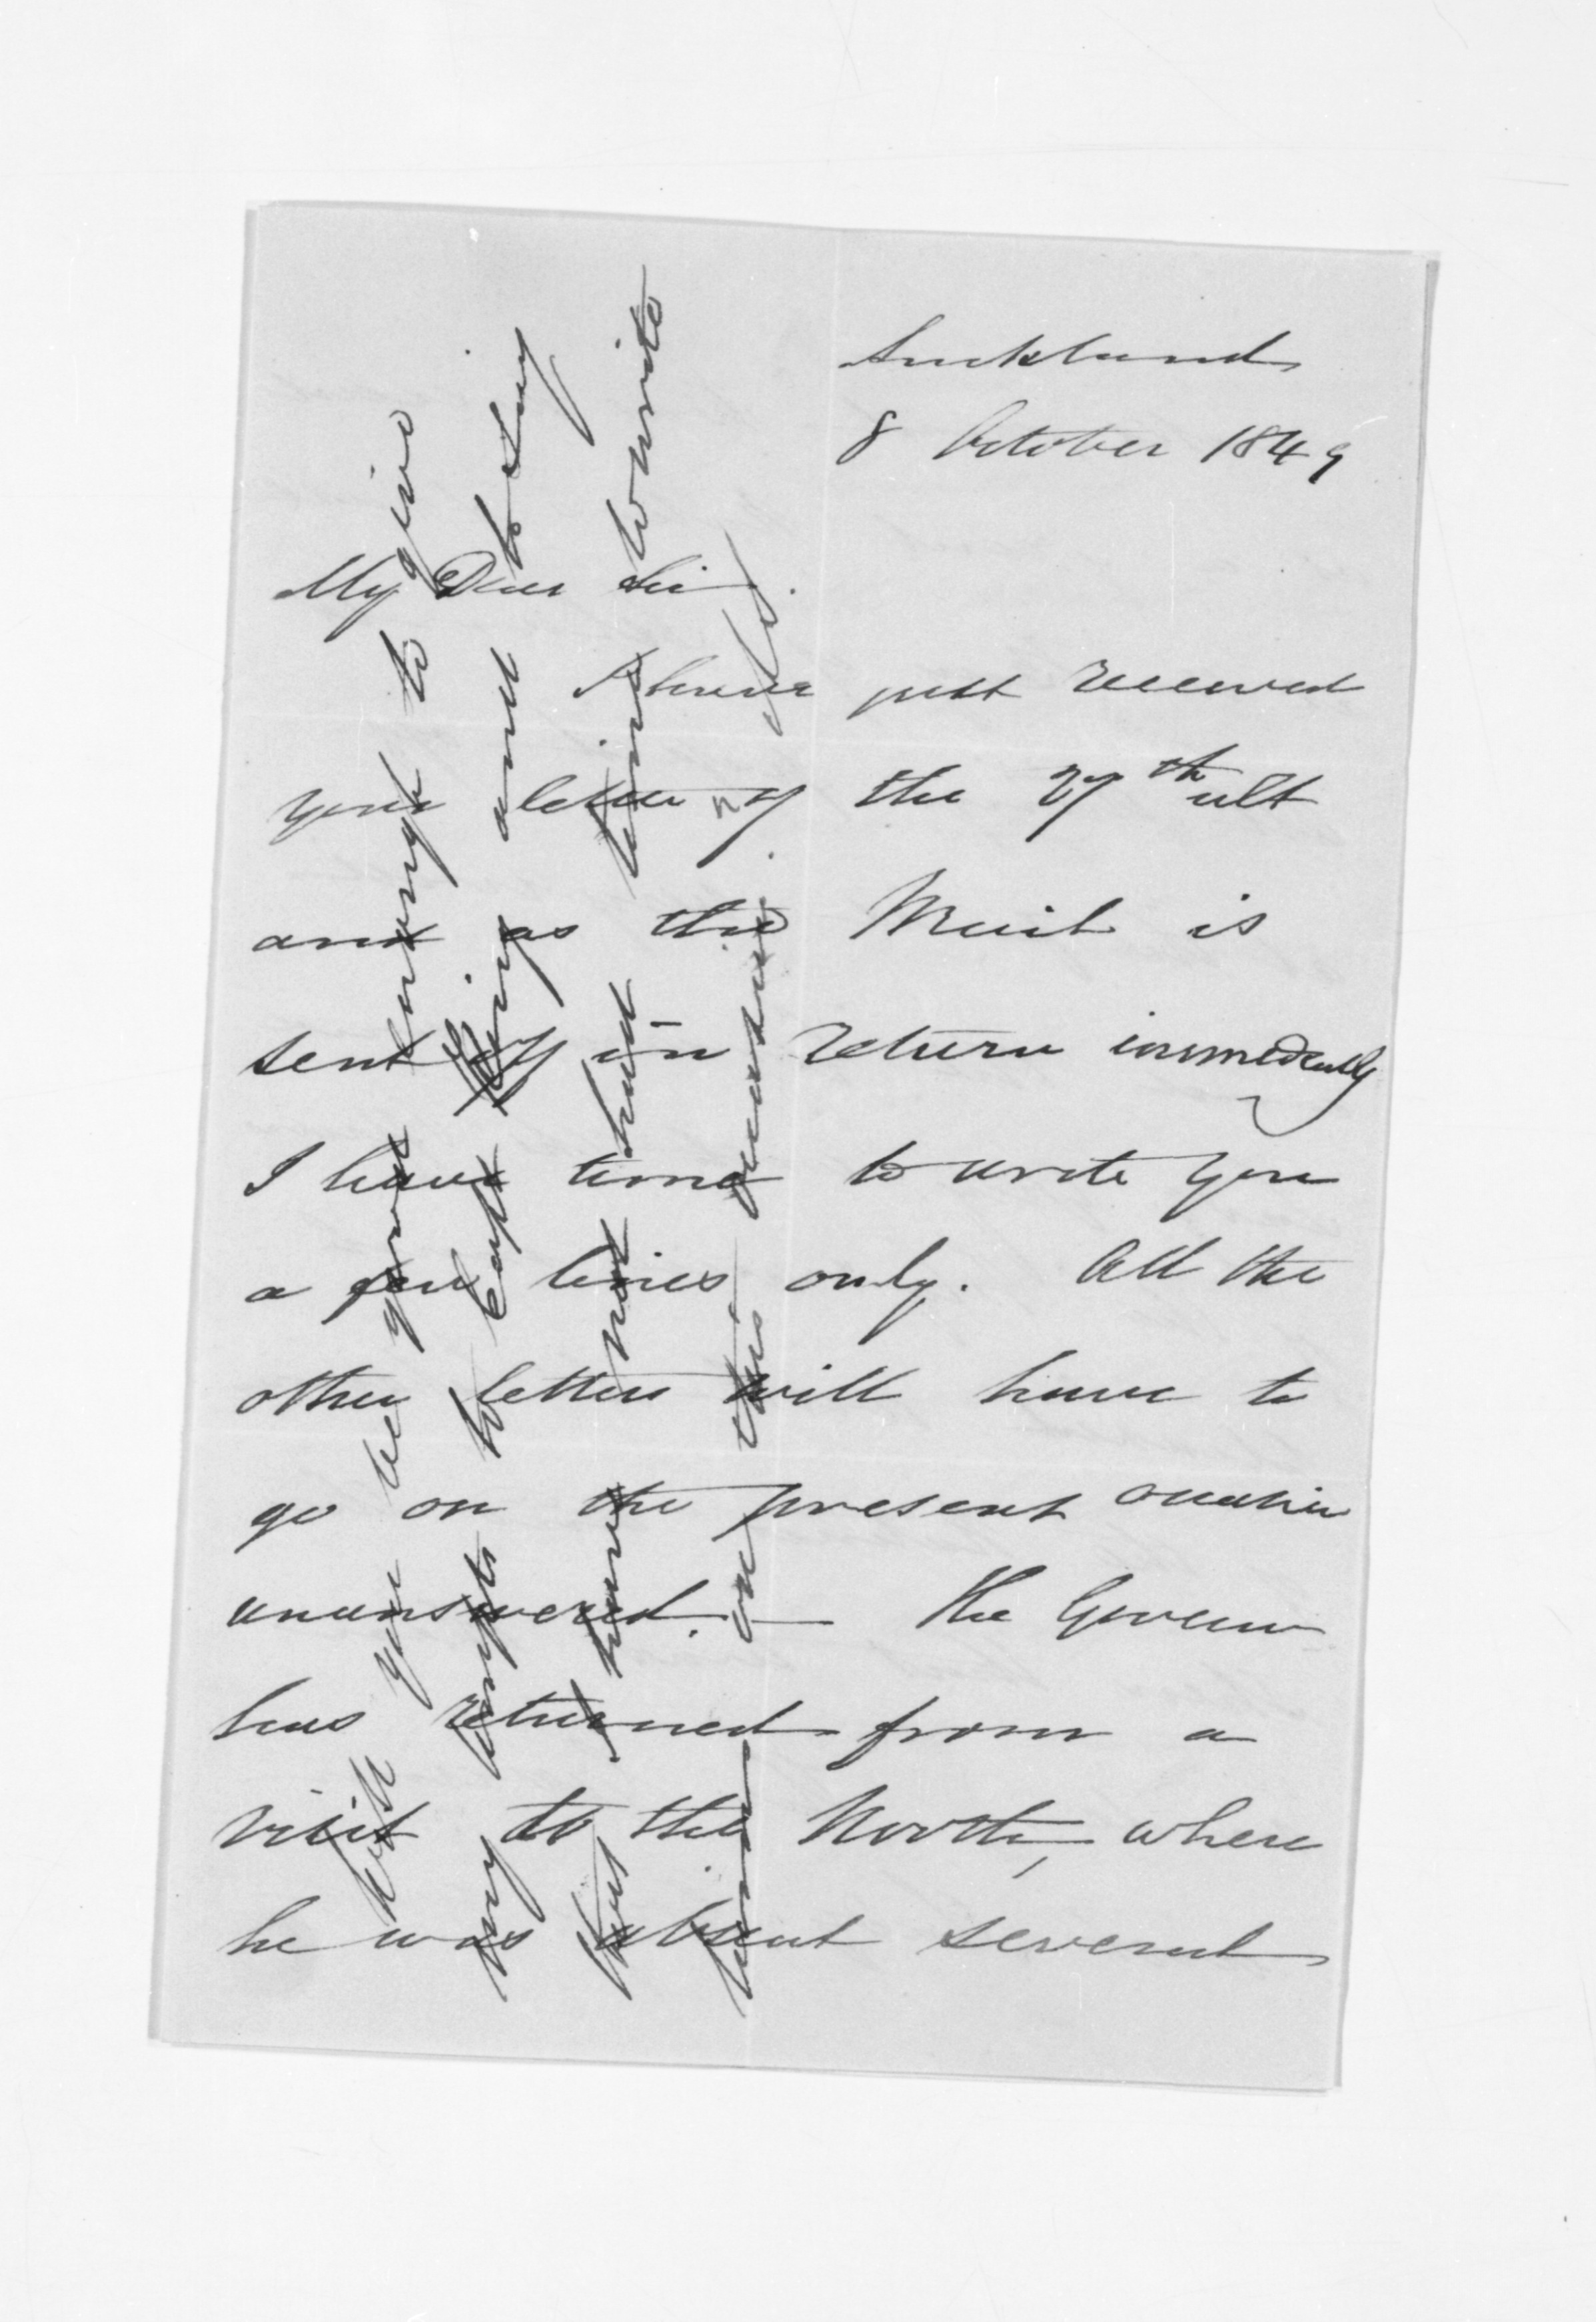 Auckland
8 October 1849
My Dear Sir
I have just received
your letter of the 27th ult
and as the Mail is
sent off in return immediately
I have time to write you
a few lines only. All the
other letters will have to
go on the present occasion
unanswered. — The Governor
has returned from a
visit to the North, where
he was absent several
will you be good enough to give
my compts to Capt King and to say
that I have not had time to write
him on this occasion.